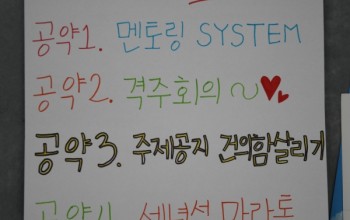 공약1. 멘토링 SYSTEM
공약2. 격주회의 ~
공약3. 주제공지 건의함살리기